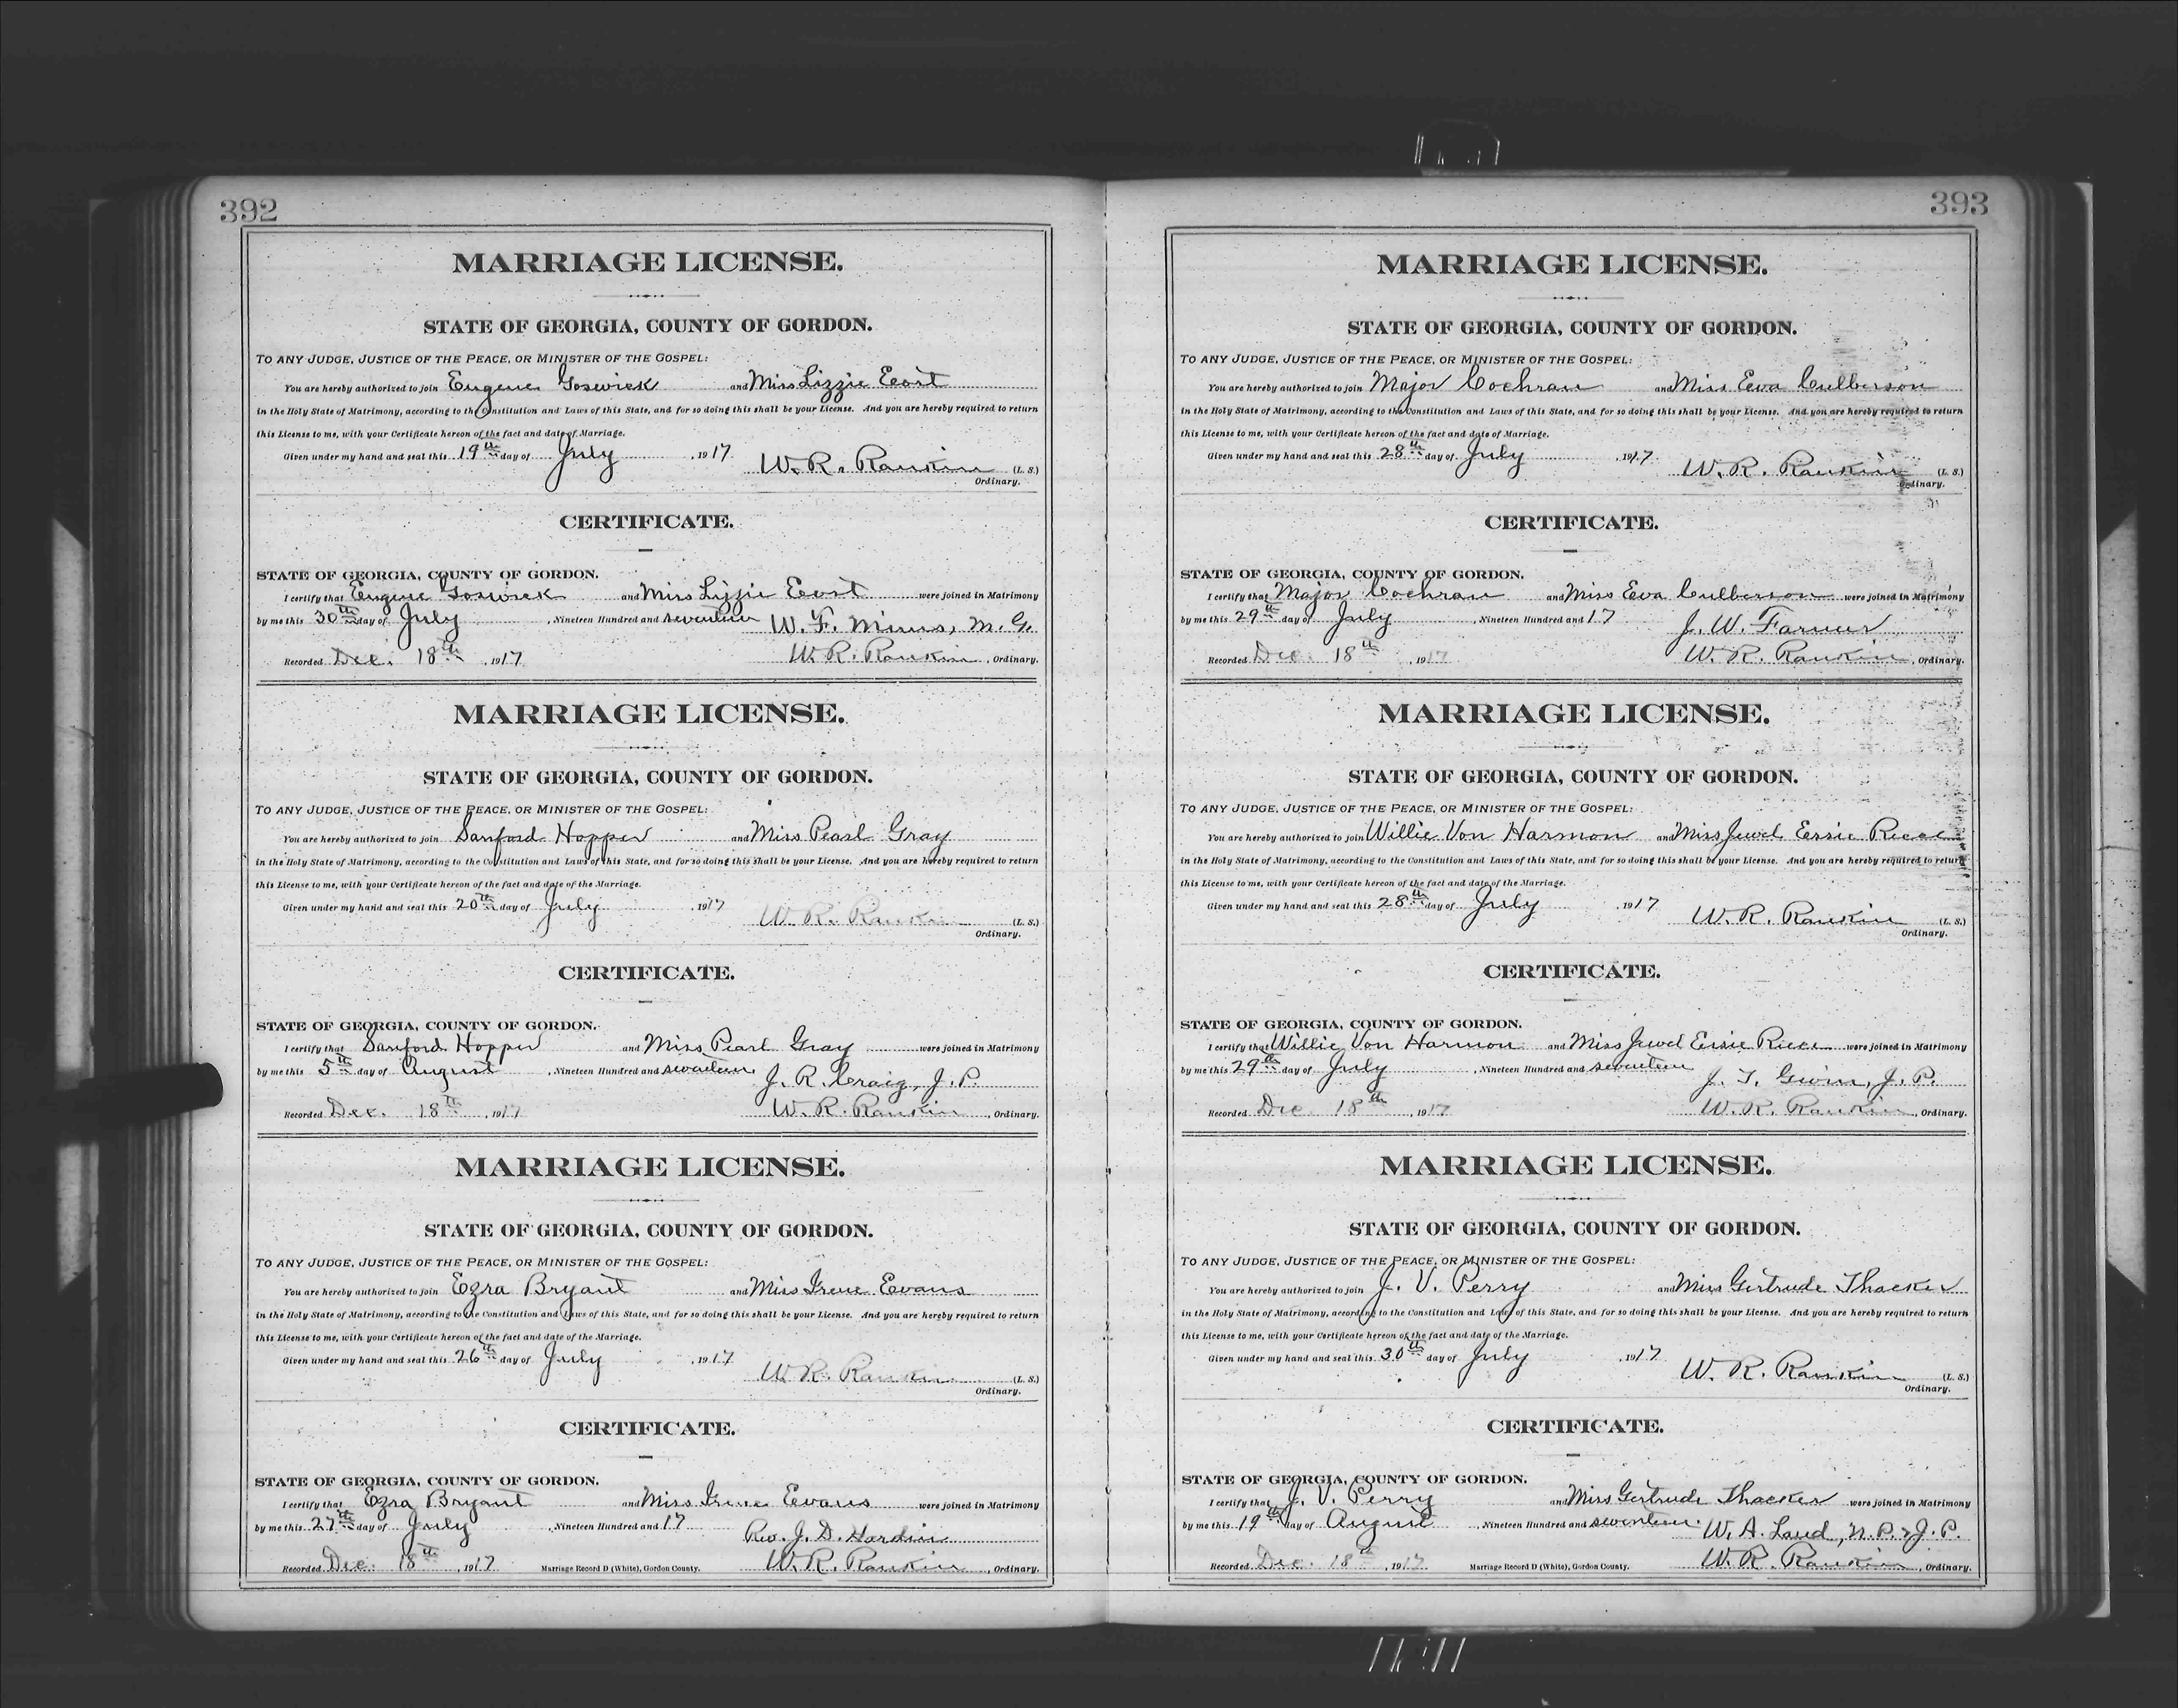 392
MARRIAGE LICENSE.
STATE OF GEORGIA, COUNTY OF GORDON.
TO ANY JUDGE, JUSTICE OF THE PEACE, OR MINISTER OF THE GOSPEL:
You are hereby authorized to join Eugene Goswick and Miss Lizzie
in the Holy State of Matrimony, according to the Constitution and Laws of this State, and for so doing this shall be your License. And you are hereby required to return
this License to me, with your Certificate hereon of the fact and date of Marriage.
Given under my hand and seal this 19th day of July, 1917 W. R. Rankin (L. S.)
Ordinary.
CERTIFICATE.
STATE OF GEORGIA, COUNTY OF GORDON.
I certify that Eugene Goswick and Miss Lizzie were joined in Matrimony
by me this 30th day of July, Nineteen Hundred and seventeen W. F. Mims, M. G.
Recorded Dec. 18th, 1917 W. R. Rankin, Ordinary.
MARRIAGE LICENSE.
STATE OF GEORGIA, COUNTY OF GORDON.
TO ANY JUDGE, JUSTICE OF THE PEACE, OR MINISTER OF THE GOSPEL:
You are hereby authorized to join Sanford Hopper and Miss Pearl Gray
in the Holy State of Matrimony, according to the Constitution and Laws of this State, and for so doing this shall be your License. And you are hereby required to return
this License to me, with your Certificate hereon of the fact and date of the Marriage.
Given under my hand and seal this 20th day of July, 1917 W. R. Rankin (L. S.)
Ordinary.
CERTIFICATE.
STATE OF GEORGIA, COUNTY OF GORDON.
I certify that Sanford Hopper and Miss Pearl Gray were joined in Matrimony
by me this 5th day of August, Nineteen Hundred and seventeen. J. R. Craig, J. P.
Recorded Dec. 18th, 1917 W. R. Rankin, Ordinary.
MARRIAGE LICENSE.
STATE OF GEORGIA, COUNTY OF GORDON.
TO ANY JUDGE, JUSTICE OF THE PEACE, OR MINISTER OF THE GOSPEL:
You are hereby authorized to join Ezra Bryant and Miss Irene Evans
in the Holy State of Matrimony, according to the Constitution and Laws of this State, and for so doing this shall be your License. And you are hereby required to return
this License to me, with your Certificate hereon of the fact and date of the Marriage.
Given under my hand and seal this 26th day of July, 1917 W. R. Rankin (L. S.)
Ordinary.
CERTIFICATE.
STATE OF GEORGIA, COUNTY OF GORDON.
I certify that Ezra Bryant and Miss Irene Evans were joined in Matrimony
by me this 27th day of July, Nineteen Hundred and 17 Rev. J. D. Hardin
Recorded Dec. 18th, 1917 Marriage Record D (White), Gordon County. W. R. Rankin, Ordinary.
393
MARRIAGE LICENSE.
STATE OF GEORGIA, COUNTY OF GORDON.
TO ANY JUDGE, JUSTICE OF THE PEACE, OR MINISTER OF THE GOSPEL:
You are hereby authorized to join Major Cochran and Miss Eva Culberson
in the Holy State of Matrimony, according to the Constitution and Laws of this State, and for so doing this shall be your License. And you are hereby required to return
this License to me, with your Certificate hereon of the fact and date of Marriage.
Given under my hand and seal this 28th day of July, 1917 W. R. Rankin (L. S.)
Ordinary.
CERTIFICATE.
STATE OF GEORGIA, COUNTY OF GORDON.
I certify that Major Cochran and Miss Eva Culberson were joined in Matrimony
by me this 29th day of July, Nineteen Hundred and 17 J. W. Farmer
Recorded Dec. 18th, 1917 W. R. Rankin, Ordinary.
MARRIAGE LICENSE.
STATE OF GEORGIA, COUNTY OF GORDON.
TO ANY JUDGE, JUSTICE OF THE PEACE, OR MINISTER OF THE GOSPEL:
You are hereby authorized to join Willie Von Harmon and Miss Jewel Essie
in the Holy State of Matrimony, according to the Constitution and Laws of this State, and for so doing this shall be your License. And you are hereby required to return
this License to me, with your Certificate hereon of the fact and date of the Marriage.
Given under my hand and seal this 28th day of July, 1917 W. R. Rankin (L. S.)
Ordinary.
CERTIFICATE.
STATE OF GEORGIA, COUNTY OF GORDON.
I certify that Willie Von Harmon and Miss Jewel Essie were joined in Matrimony
by me this 29th day of July, Nineteen Hundred and seventeen J. T. Gwin, J. P.
Recorded Dec 18th, 1917 W. R. Rankin, Ordinary.
MARRIAGE LICENSE.
STATE OF GEORGIA, COUNTY OF GORDON.
TO ANY JUDGE, JUSTICE OF THE PEACE, OR MINISTER OF THE GOSPEL:
You are hereby authorized to join J. V. Perry and Miss Gertrude Thacker
in the Holy State of Matrimony, according to the Constitution and Laws of this State, and for so doing this shall be your License. And you are hereby required to return
this License to me, with your Certificate hereon of the fact and date of the Marriage.
Given under my hand and seal this 30th day of July, 1917 W. R. Rankin (L. S.)
Ordinary.
CERTIFICATE.
STATE OF GEORGIA, COUNTY OF GORDON.
I certify that J. V. Perry and Miss Gertrude Thacker were joined in Matrimony
by me this 19th day of August, Nineteen Hundred and seventeen. W. A. Land, N. P. & J. P.
Recorded Dec. 18th, 1917 Marriage Record D (White), Gordon County. W. R. Rankin, Ordinary.